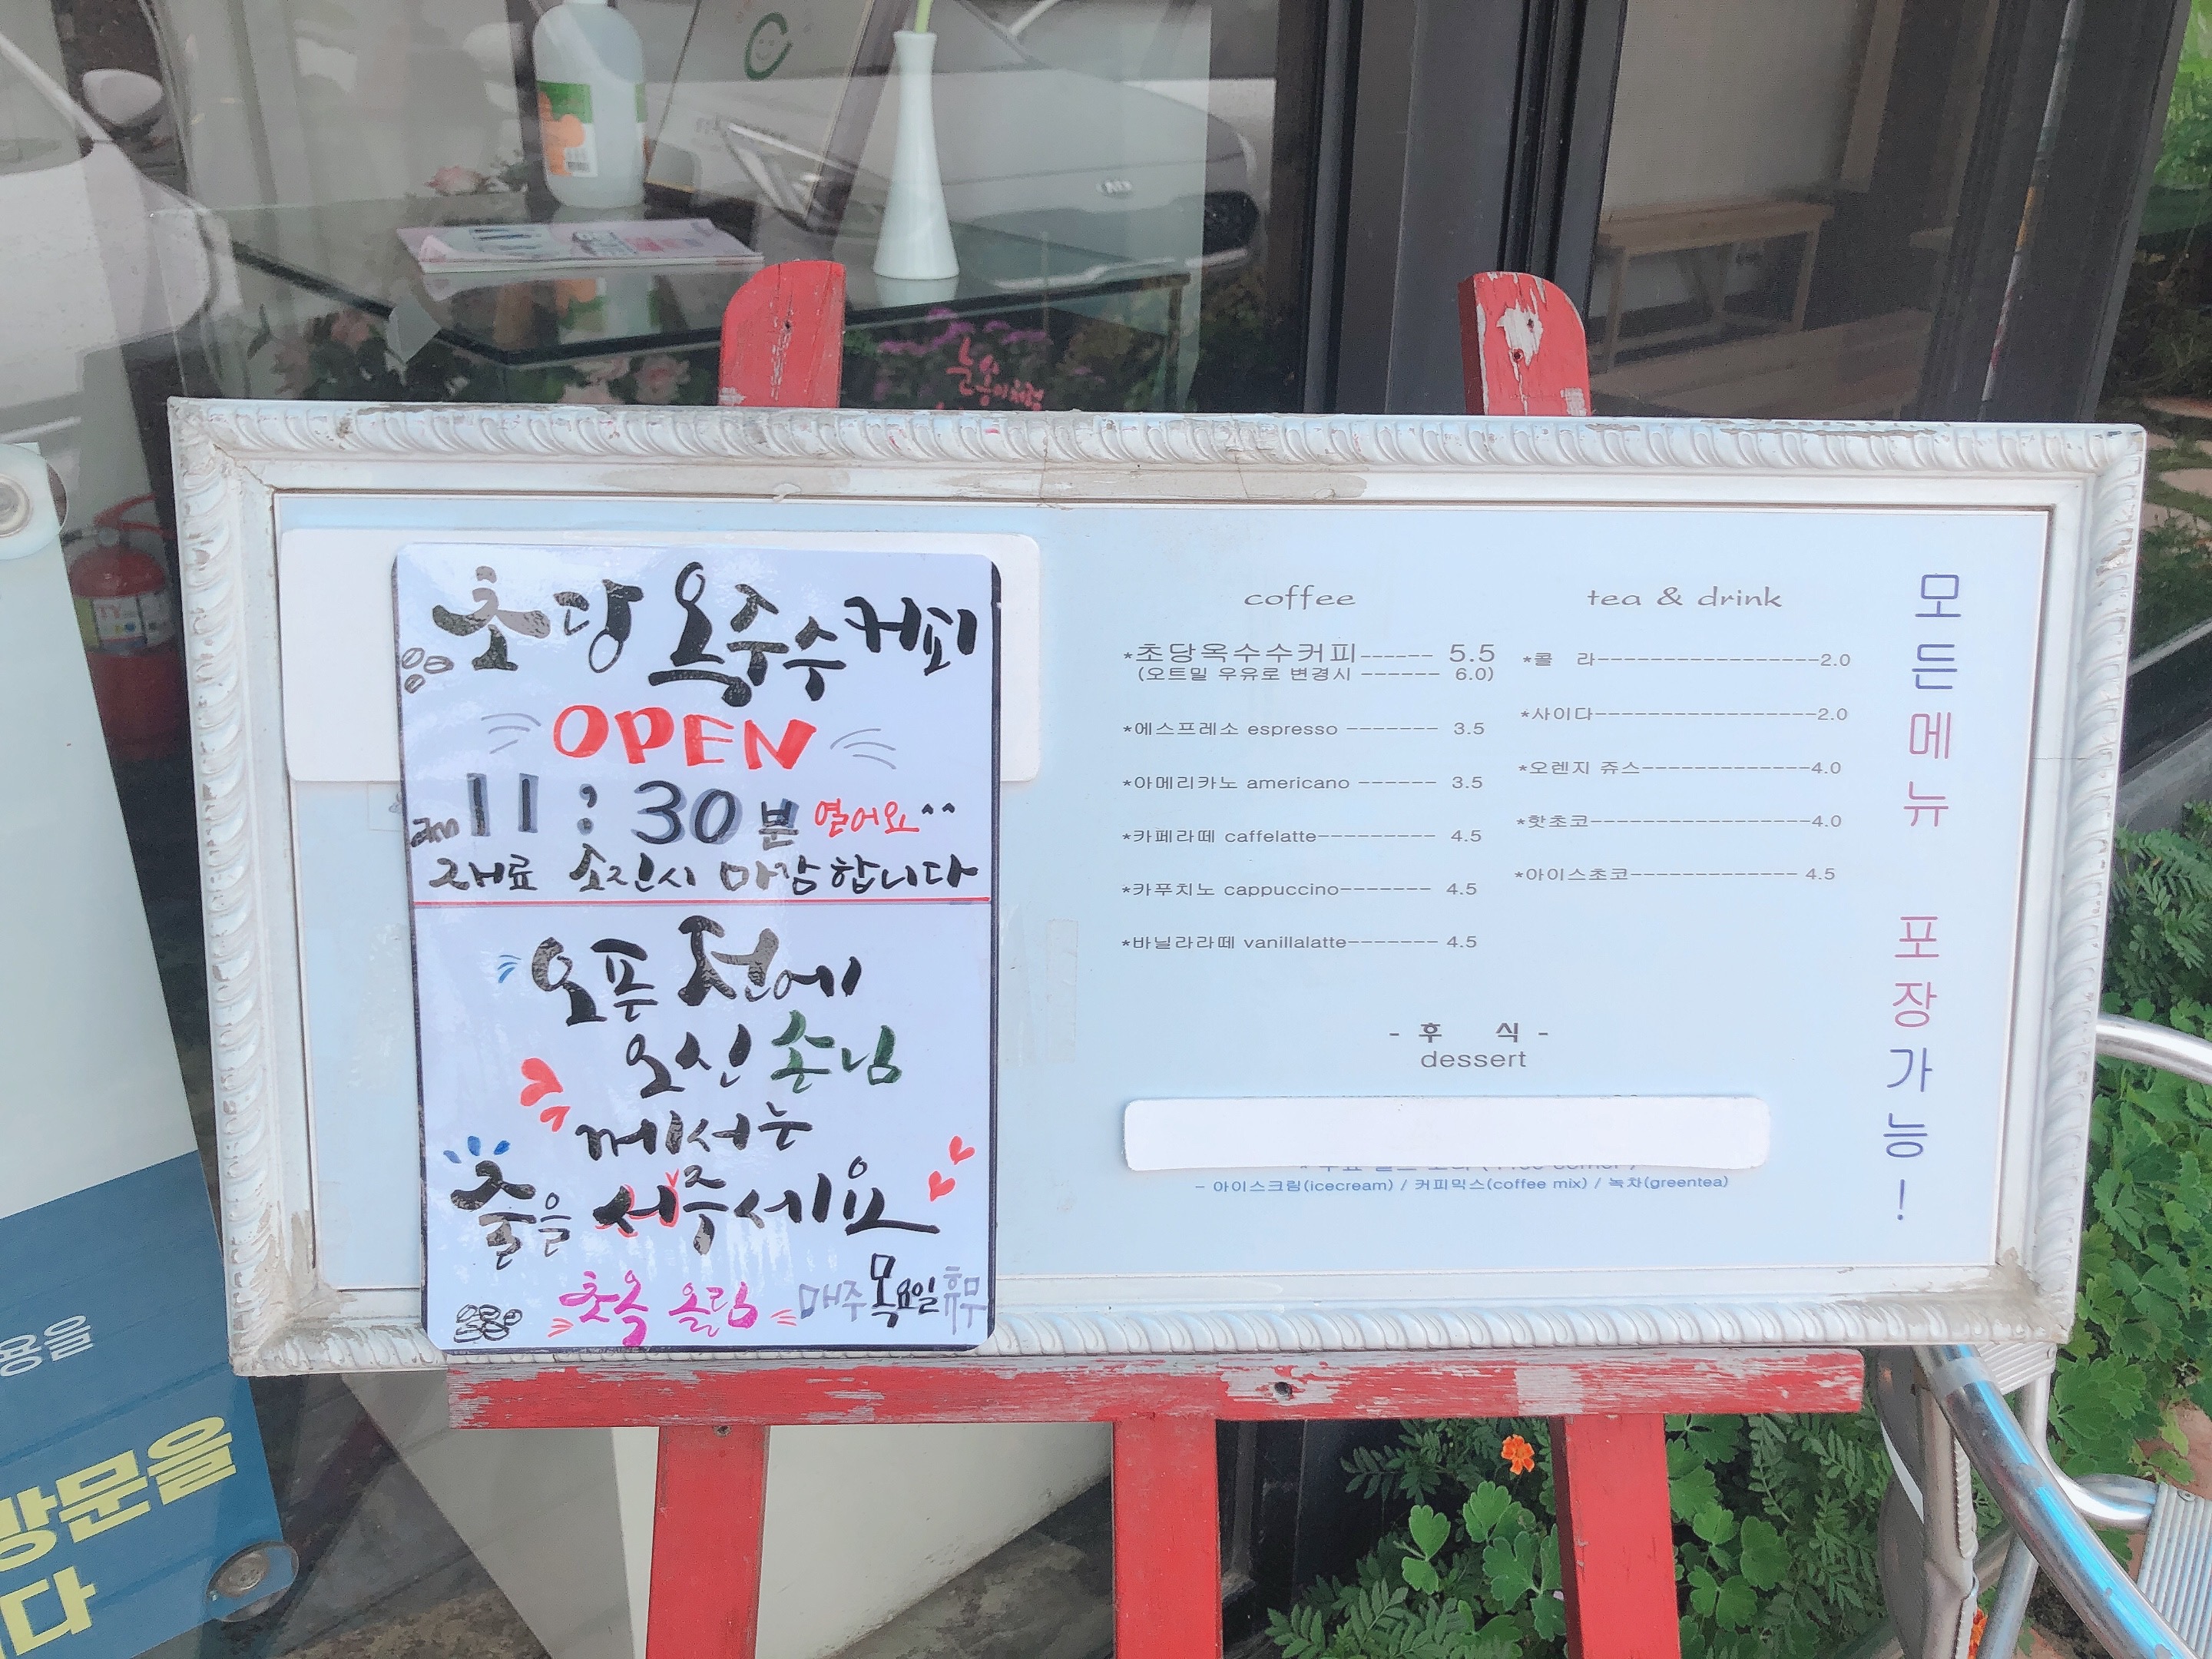 초당 옥수수커피
OPEN
am 11:30분 열어요^^
재료 소진시 마감합니다
오픈 전에
오신 손님
께서는
줄을 서주세요
촛옥 올림
매주 목요일 휴무
coffee
*초당옥수수커피------ 5.5
(오트밀 우유로 변경시 ------ 6.0)
*에스프레소 espresso ------- 3.5
*아메리카노 americano ------ 3.5
*카페라떼 caffelatte--------- 4.5
*카푸치노 cappuccino------- 4.5
*바닐라라떼 vanillalatte------- 4.5
tea & drink
*콜 라-----------------2.0
*사이다-----------------2.0
*오렌지 쥬스-------------4.0
*핫초코-----------------4.0
*아이스초코------------- 4.5
- 후 식 -
dessert
- 아이스크림(icecream) / 커피믹스(coffee mix) / 녹차(greentea)
모든메뉴 포장가능!
용을
방문을
다